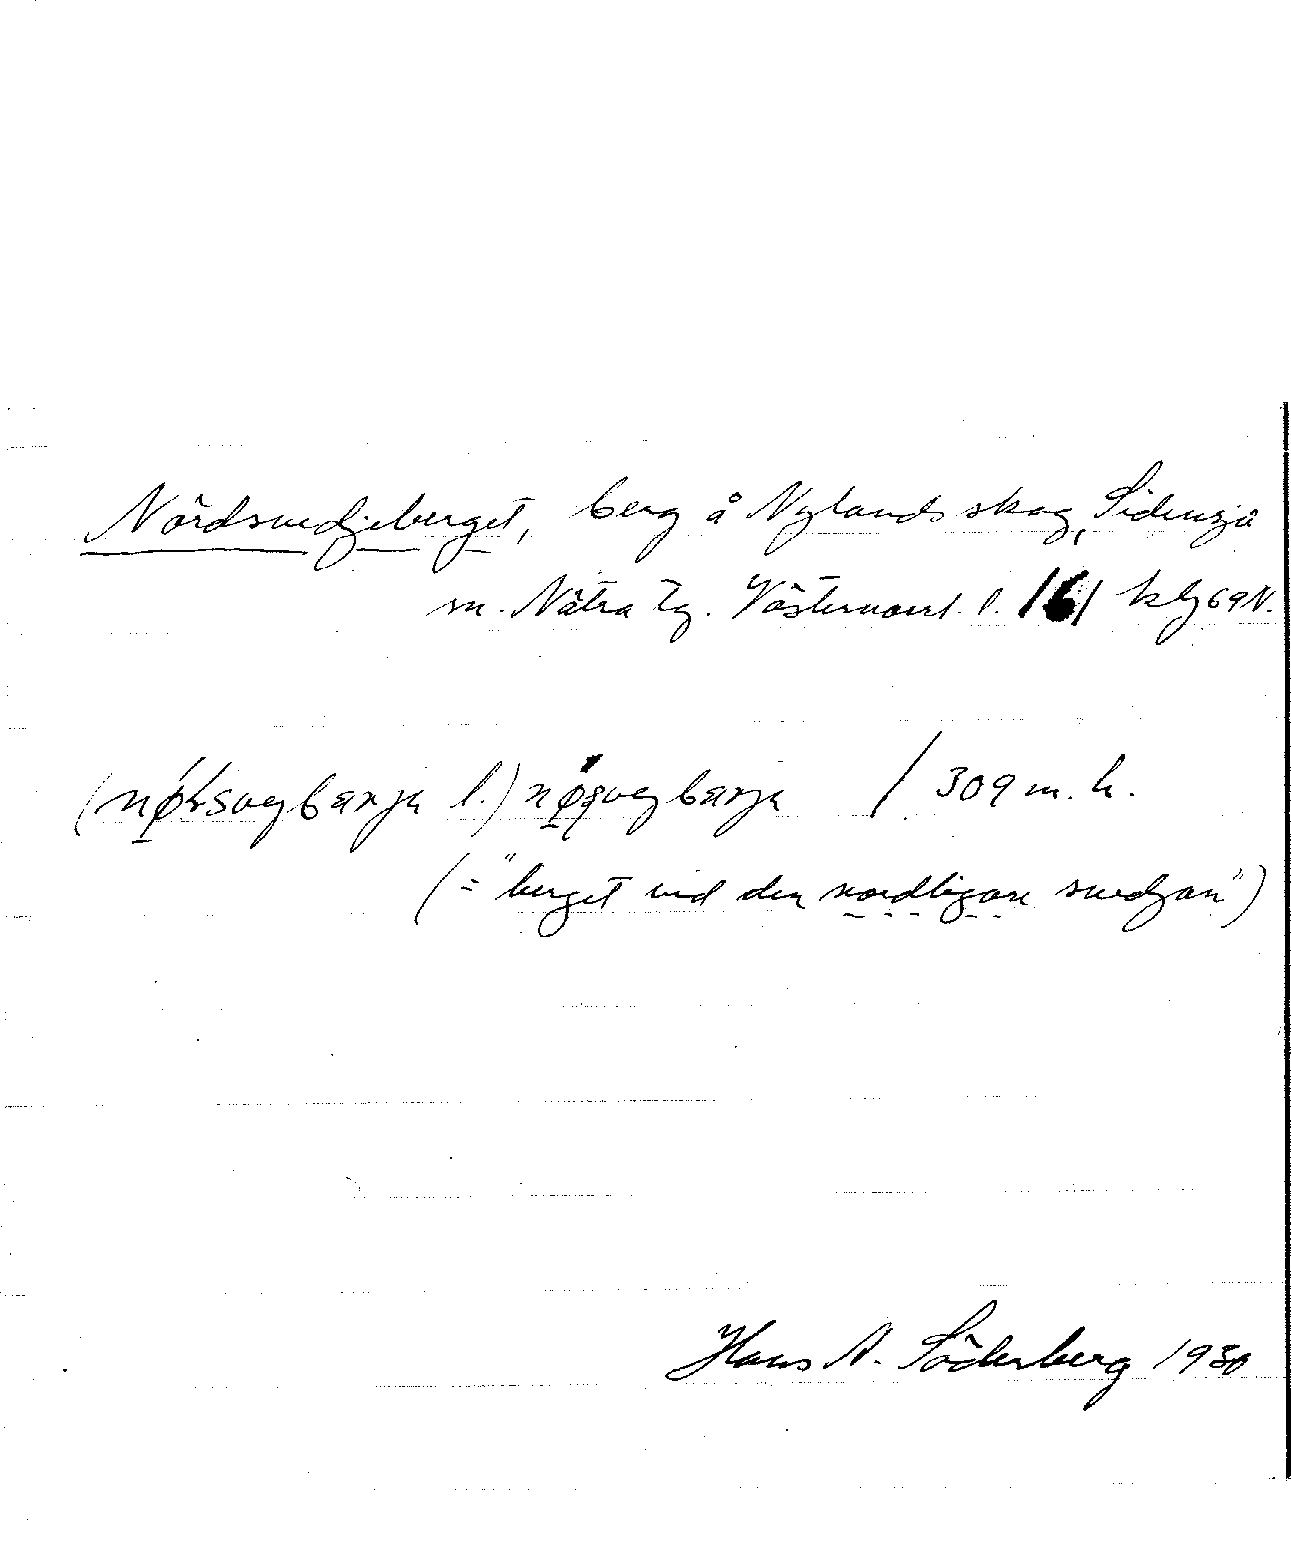 Nördsvedjeberget, berg å Nylands skog, Sidensjö
sn. Nätra tg. Västernorrl. l. 161 kbl 69 N.
(nørsvegbærje l.) nøsvegbærje / 309 m. h.
(= "berget vid den nordligare svedjan")
Hans A. Söderberg 1930